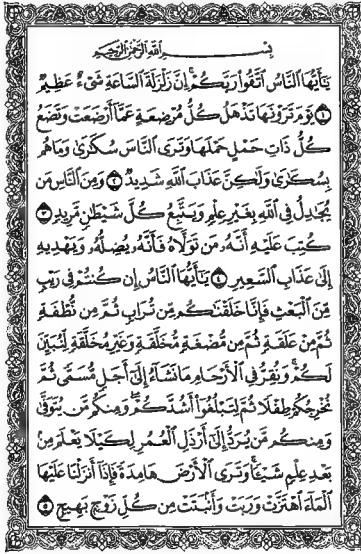 بِسْمِ اللَّهِ الرَّحْمَٰنِ الرَّحِيمِ
يَٰٓأَيُّهَا النَّاسُ اتَّقُوا۟ رَبَّكُمْ ۚ إِنَّ زَلْزَلَةَ السَّاعَةِ شَىْءٌ عَظِيمٌ
﴿١﴾ يَوْمَ تَرَوْنَهَا تَذْهَلُ كُلُّ مُرْضِعَةٍ عَمَّآ أَرْضَعَتْ وَتَضَعُ
كُلُّ ذَاتِ حَمْلٍ حَمْلَهَا وَتَرَى النَّاسَ سُكَٰرَىٰ وَمَا هُم
بِسُكَٰرَىٰ وَلَٰكِنَّ عَذَابَ اللَّهِ شَدِيدٌ ﴿٢﴾ وَمِنَ النَّاسِ مَن
يُجَٰدِلُ فِى اللَّهِ بِغَيْرِ عِلْمٍ وَيَتَّبِعُ كُلَّ شَيْطَٰنٍ مَّرِيدٍ ﴿٣﴾
كُتِبَ عَلَيْهِ أَنَّهُۥ مَن تَوَلَّاهُ فَأَنَّهُۥ يُضِلُّهُۥ وَيَهْدِيهِ
إِلَىٰ عَذَابِ السَّعِيرِ ﴿٤﴾ يَٰٓأَيُّهَا النَّاسُ إِن كُنتُمْ فِى رَيْبٍ
مِّنَ الْبَعْثِ فَإِنَّا خَلَقْنَٰكُم مِّن تُرَابٍ ثُمَّ مِن نُّطْفَةٍ
ثُمَّ مِنْ عَلَقَةٍ ثُمَّ مِن مُّضْغَةٍ مُّخَلَّقَةٍ وَغَيْرِ مُخَلَّقَةٍ لِّنُبَيِّنَ
لَكُمْ ۚ وَنُقِرُّ فِى الْأَرْحَامِ مَا نَشَآءُ إِلَىٰٓ أَجَلٍ مُّسَمًّى ثُمَّ
نُخْرِجُكُمْ طِفْلًا ثُمَّ لِتَبْلُغُوٓا۟ أَشُدَّكُمْ ۖ وَمِنكُم مَّن يُتَوَفَّىٰ
وَمِنكُم مَّن يُرَدُّ إِلَىٰٓ أَرْذَلِ الْعُمُرِ لِكَيْلَا يَعْلَمَ مِنۢ
بَعْدِ عِلْمٍ شَيْـًٔا ۚ وَتَرَى الْأَرْضَ هَامِدَةً فَإِذَآ أَنزَلْنَا عَلَيْهَا
الْمَآءَ اهْتَزَّتْ وَرَبَتْ وَأَنۢبَتَتْ مِن كُلِّ زَوْجٍۭ بَهِيجٍ ﴿٥﴾